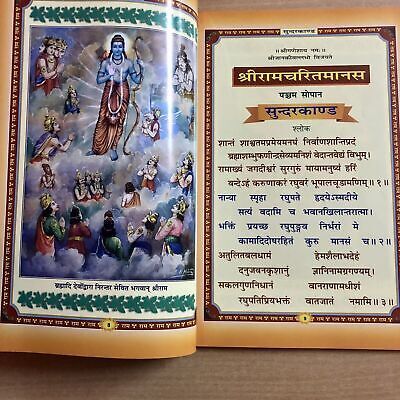 ब्रह्मादि देवोंद्वारा निरन्तर सेवित भगवान् श्रीराम
सुन्दरकाण्ड
॥ श्रीगणेशाय नमः ॥
श्रीजानकीवल्लभो विजयते
श्रीरामचरितमानस
पञ्चम सोपान
सुन्दरकाण्ड
श्लोक
शान्तं शाश्वतमप्रमेयमनघं निर्वाणशान्तिप्रदं
ब्रह्माशम्भुफणीन्द्रसेव्यमनिशं वेदान्तवेद्यं विभुम्।
रामाख्यं जगदीश्वरं सुरगुरुं मायामनुष्यं हरिं
वन्देऽहं करुणाकरं रघुवरं भूपालचूडामणिम्॥१॥
नान्या स्पृहा रघुपते हृदयेऽस्मदीये
सत्यं वदामि च भवानखिलान्तरात्मा।
भक्तिं प्रयच्छ रघुपुङ्गव निर्भरां मे
कामादिदोषरहितं कुरु मानसं च॥२॥
अतुलितबलधामं हेमशैलाभदेहं
दनुजवनकृशानुं ज्ञानिनामग्रगण्यम्।
सकलगुणनिधानं वानराणामधीशं
रघुपतिप्रियभक्तं वातजातं नमामि॥३॥